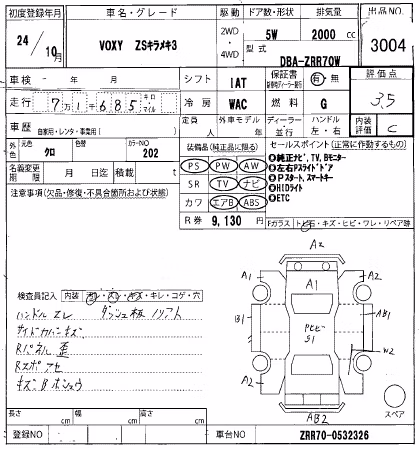 初度登録年月 車名・グレード 駆動 ドア数・形状 排気量 出品NO.
24/10月 VOXY ZSキラメキ3 2WD・4WD 5W 2000 cc 3004
型式 DBA-ZRR70W
車検 - 年 月 シフト IAT 保証書 有・無 評価点
走行 7万1千685 キロ・マイル 冷房 WAC 燃料 G 3.5
車歴 自家用・レンタ・事業用( ) 定員 人 外車モデル 年 ディーラー・並行 ハンドル 左・右 内装評価 C
外色 元色 クロ 色替 カラーNO 202
装備品(純正品に限る) セールスポイント(正常に作動するもの)
名義変更期限 月 日迄 積載 t
PS PW AW
SR TV ナビ
カワ エアB ABS
R券 9,130 円
◎純正ナビ,TV,Bモニター
◎左右Pスライドドア
◎Pスタート,スマートキー
◎HIDライト
◎ETC
注意事項(欠品・修復・不具合箇所および状態)
Fガラス トビ石・キズ・ヒビ・ワレ・リペア跡
検査員記入 内装 汚レ・スレ・キズ・キレ・コゲ・穴
ハンドル スレ ダッシュ板 ノリアト
サイドカバーキズ
Rパネル 歪
Rスポ アセ
キズ B ホシュウ
A2
A1 A1 A2
B1 AB1
トビヒビ S1
W2
A2
AB2
スペア
長さ cm 巾 cm 高さ cm
登録NO 車台NO ZRR70-0532326